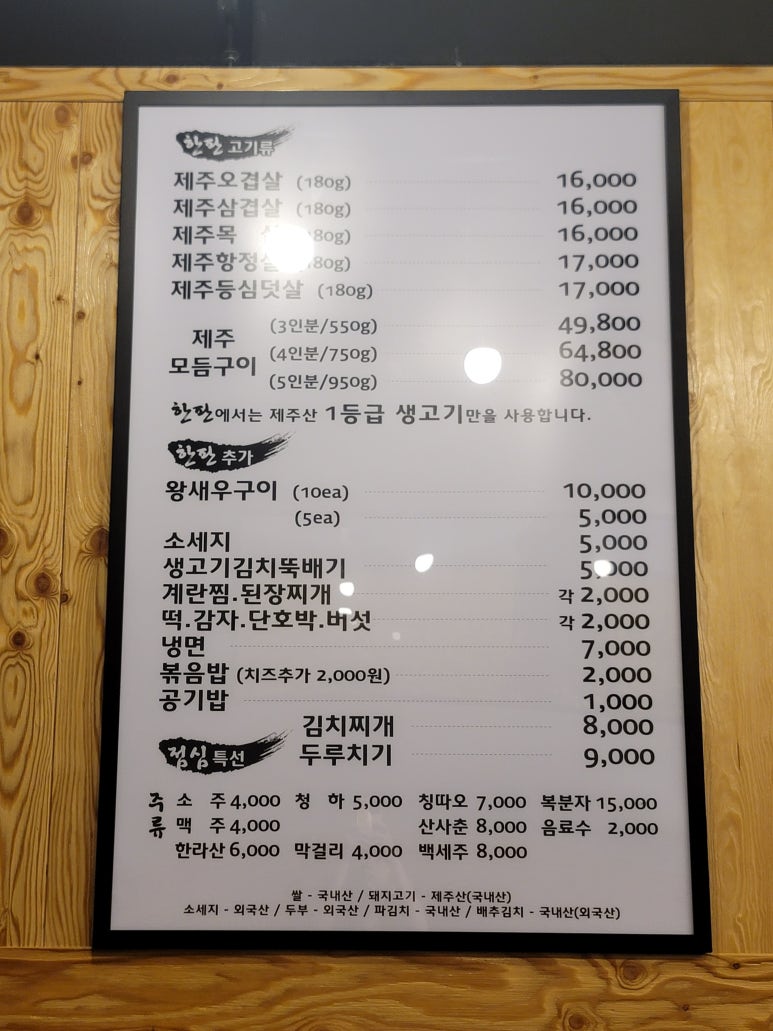 한판 고기류
제주오겹살 (180g) 16,000
제주삼겹살 (180g) 16,000
제주목 (180g) 16,000
제주항정살 (180g) 17,000
제주등심덧살 (180g) 17,000
제주 모듬구이
(3인분/550g) 49,800
(4인분/750g) 64,800
(5인분/950g) 80,000
한판에서는 제주산 1등급 생고기만을 사용합니다.
한판 추가
왕새우구이 (10ea) 10,000
(5ea) 5,000
소세지 5,000
생고기김치뚝배기 5,000
계란찜.된장찌개 각 2,000
떡.감자.단호박.버섯 각 2,000
냉면 7,000
볶음밥 (치즈추가 2,000원) 2,000
공기밥 1,000
점심특선
김치찌개 8,000
두루치기 9,000
주류
소 주 4,000 청 하 5,000 칭따오 7,000 복분자 15,000
맥 주 4,000 산사춘 8,000 음료수 2,000
한라산 6,000 막걸리 4,000 백세주 8,000
쌀 - 국내산 / 돼지고기 - 제주산(국내산)
소세지 - 외국산 / 두부 - 외국산 / 파김치 - 국내산 / 배추김치 - 국내산(외국산)